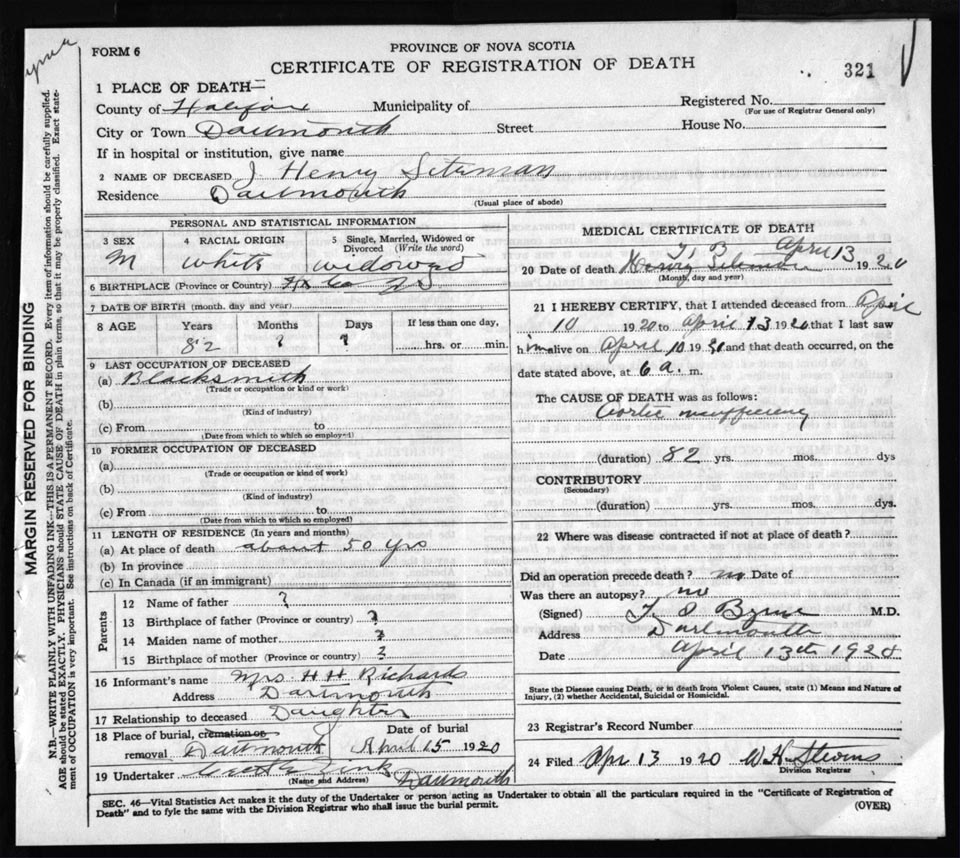 FORM 6
PROVINCE OF NOVA SCOTIA
CERTIFICATE OF REGISTRATION OF DEATH
321
1 PLACE OF DEATH—
County of Halifax Municipality of Registered No.
(For use of Registrar General only)
City or Town Dartmouth Street House No.
If in hospital or institution, give name
2 NAME OF DECEASED J. Henry
Residence Dartmouth
(Usual place of abode)
PERSONAL AND STATISTICAL INFORMATION
3 SEX 4 RACIAL ORIGIN 5 Single, Married, Widowed or Divorced (Write the word)
M white widowed
6 BIRTHPLACE (Province or Country)
7 DATE OF BIRTH (month, day and year)
8 AGE Years Months Days If less than one day,
82 ? ? hrs. or min.
9 LAST OCCUPATION OF DECEASED
(a) Blacksmith
(Trade or occupation or kind or work)
(b)
(Kind of industry)
(c) From to
(Date from which to which so employed)
10 FORMER OCCUPATION OF DECEASED
(a)
(Trade or occupation or kind of work)
(b)
(Kind of industry)
(c) From to
(Date from which to which so employed)
11 LENGTH OF RESIDENCE (In years and months)
(a) At place of death about 50 yrs
(b) In province
(c) In Canada (if an immigrant)
Parents
12 Name of father ?
13 Birthplace of father (Province or country) ?
14 Maiden name of mother ?
15 Birthplace of mother (Province or country) ?
16 Informant's name Mrs. H H Richards
Address Dartmouth
17 Relationship to deceased Daughter
18 Place of burial, cremation or removal Dartmouth Date of burial April 15 1920
19 Undertaker Zink Dartmouth
(Name and Address)
MEDICAL CERTIFICATE OF DEATH
20 Date of death Henry April 13 1920
(Month, day and year)
21 I HEREBY CERTIFY, that I attended deceased from April
10 1920 to April 13 1920 that I last saw
him alive on April 10 1920 and that death occurred, on the
date stated above, at 6 a. m.
The CAUSE OF DEATH was as follows:
Aortic insufficiency
(duration) 82 yrs. mos. dys
CONTRIBUTORY
(Secondary)
(duration) yrs. mos. dys.
22 Where was disease contracted if not at place of death?
Did an operation precede death? no Date of
Was there an autopsy? no
(Signed) Byrne M.D.
Address Dartmouth
Date April 13th 1920
State the Disease causing Death, or in death from Violent Causes, state (1) Means and Nature of
Injury, (2) whether Accidental, Suicidal or Homicidal.
23 Registrar's Record Number
24 Filed Apr 13 1920 W H Stevens
Division Registrar
SEC. 46—Vital Statistics Act makes it the duty of the Undertaker or person acting as Undertaker to obtain all the particulars required in the "Certificate of Registration of
Death" and to fyle the same with the Division Registrar who shall issue the burial permit.
(OVER)
MARGIN RESERVED FOR BINDING
N.B.—WRITE PLAINLY WITH UNFADING INK—THIS IS A PERMANENT RECORD. Every item of information should be carefully supplied.
AGE should be stated EXACTLY. PHYSICIANS should STATE CAUSE OF DEATH in plain terms, so that it may be properly classified. Exact state-
ment of OCCUPATION is very important. See instructions on back of Certificate.